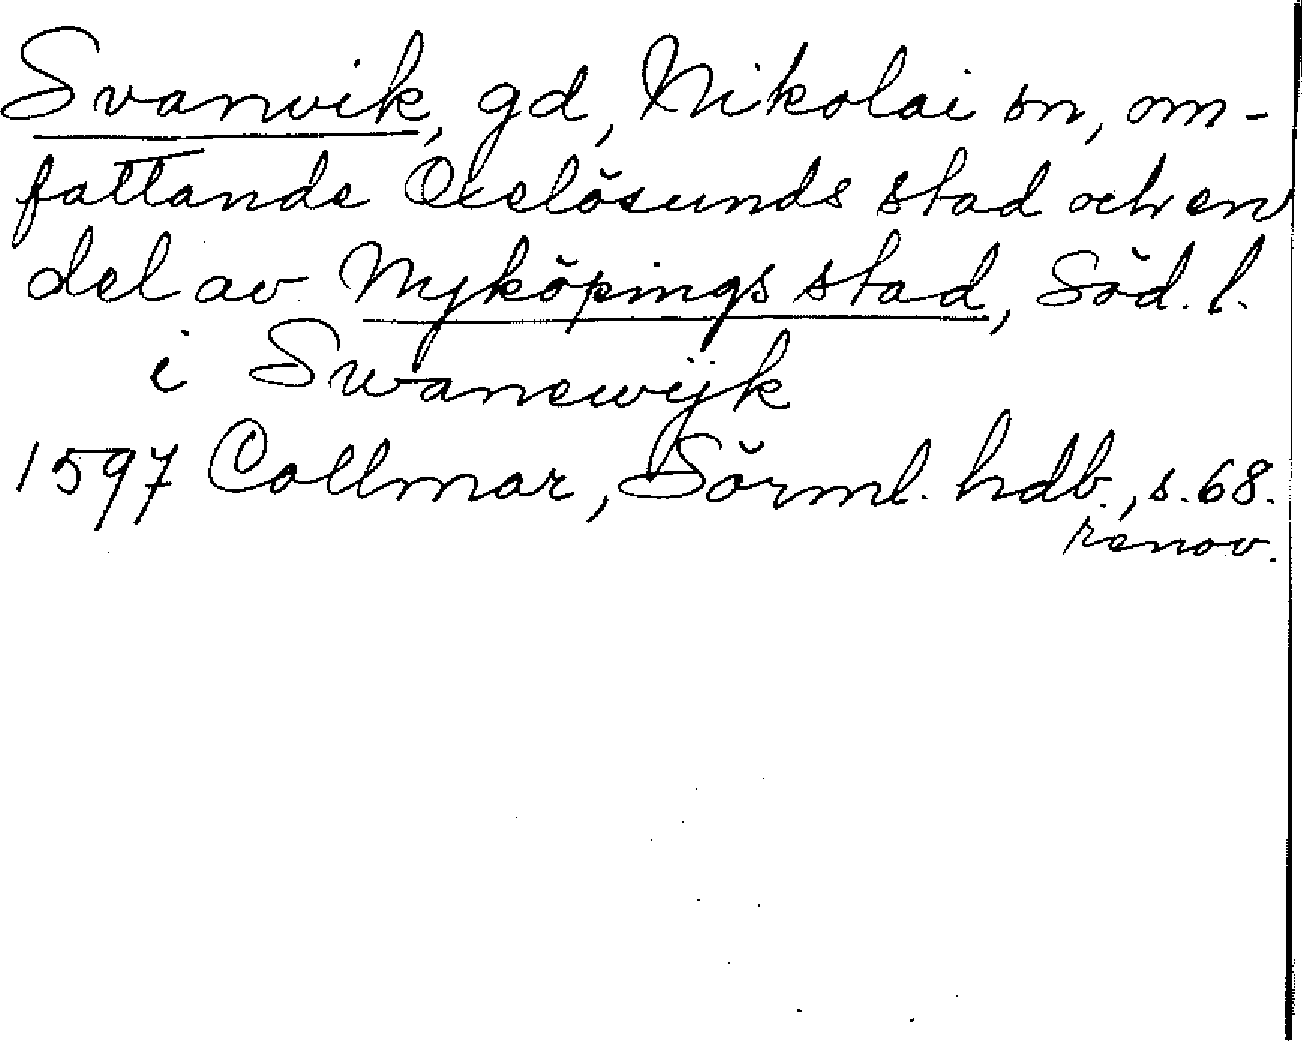 Svanvik, gd, Nikolai sn, om-
fattande Oxelösunds stad och en
del av Nyköpings stad, Söd. l.
i Swanewijk
1597 Collmar, Sörml. hdb., s. 68.
renov.